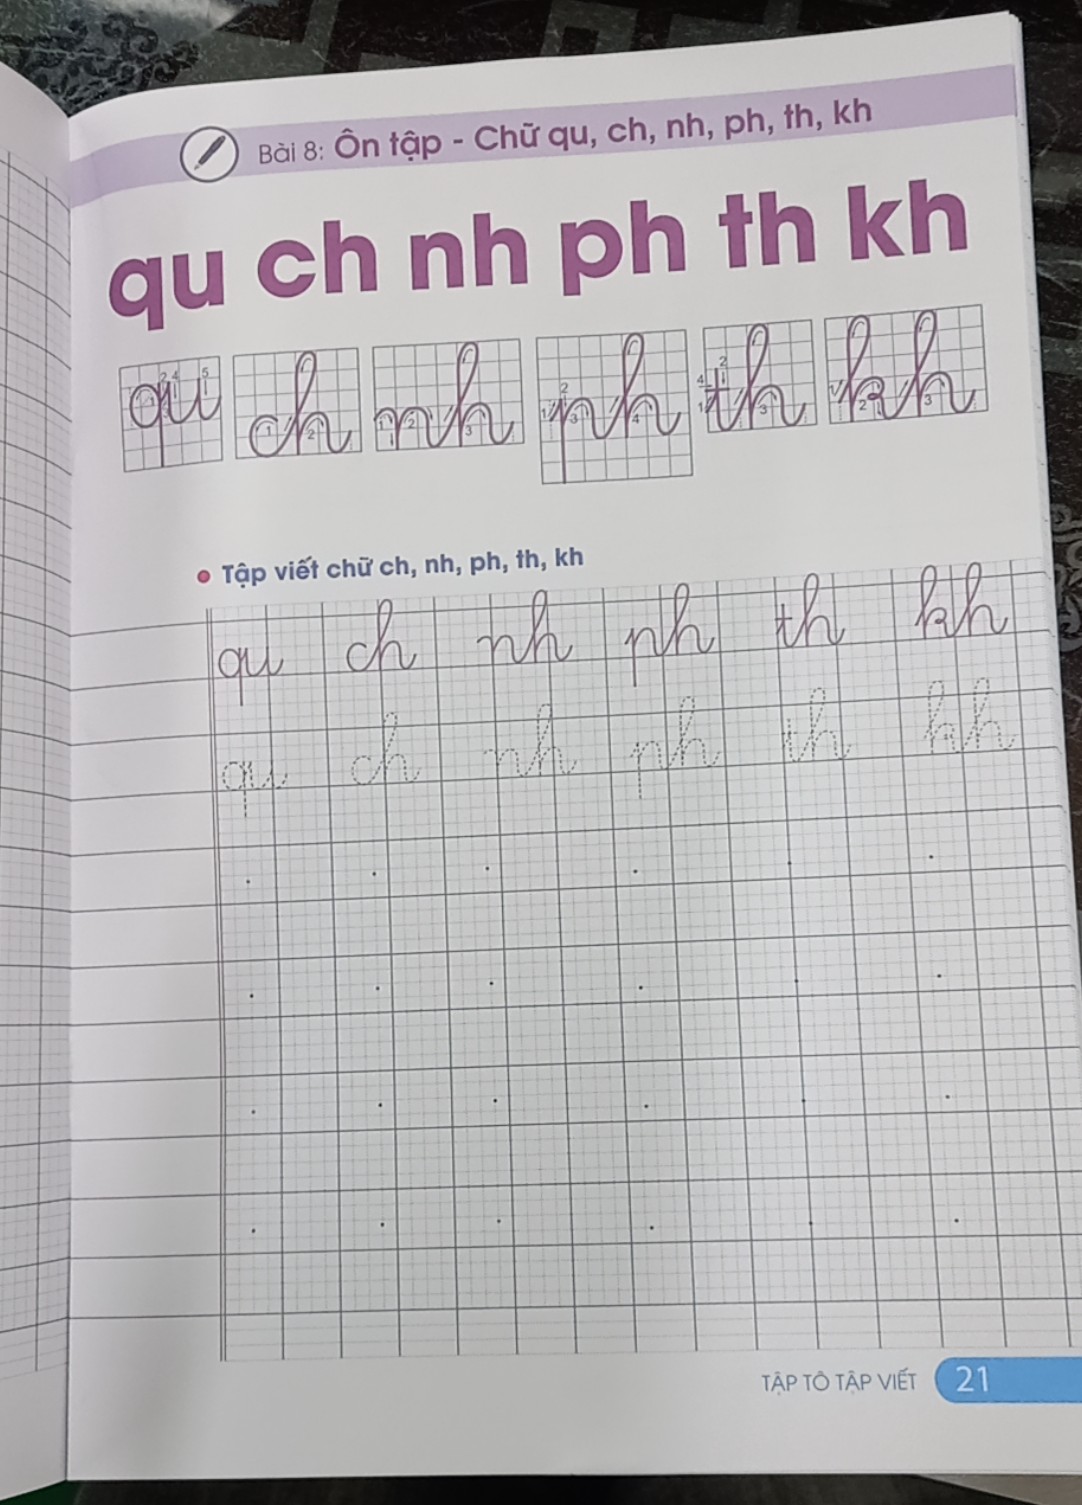 Bài 8: Ôn tập - Chữ qu, ch, nh, ph, th, kh
qu ch nh ph th kh
qu ch nh ph th kh
Tập viết chữ ch, nh, ph, th, kh
qu ch nh ph th kh
qu ch nh ph th kh
TẬP TÔ TẬP VIẾT 21